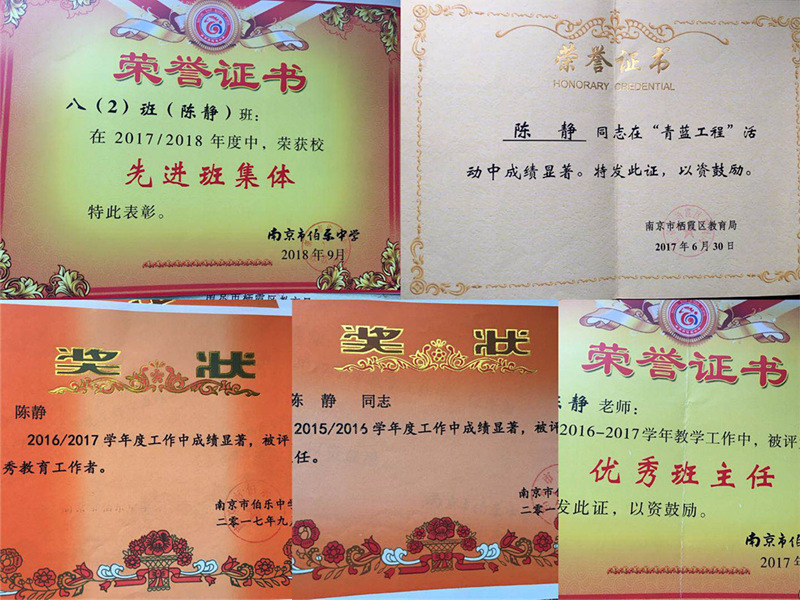 荣誉证书
八（2）班（陈静）班：
在 2017/2018 年度中，荣获校
先进班集体
特此表彰。
南京市伯乐中学
2018 年 9月
荣誉证书
HONORARY CREDENTIAL
陈 静 同志在“青蓝工程”活
动中成绩显著。特发此证，以资鼓励。
南京市栖霞区教育局
2017 年 6 月 30 日
奖 状
陈静
2016/2017 学年度工作中成绩显著，被评
秀教育工作者。
南京市伯乐中
二〇一七年九
奖 状
陈 静 同志
2015/2016 学年度工作中成绩显著，被评
任。
南京市
二〇一
荣誉证书
陈 静 老师：
2016-2017 学年教学工作中，被评
优秀班主任
发此证，以资鼓励。
南京市伯
2017 年